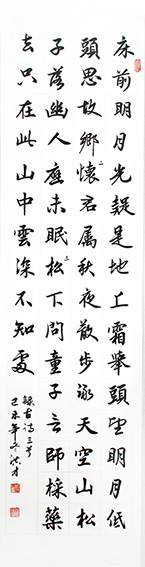 床前明月光疑是地上霜舉頭望明月低
頭思故鄉二懷君属秋夜散步詠天空山松
子落幽人應未眠三松下問童子言師採藥
去只在此山中雲深不知處
錄古詩三首
己未年冬